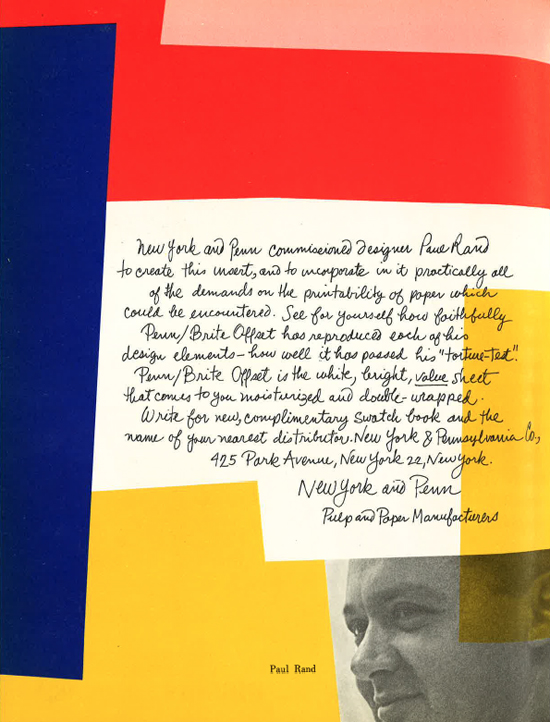 New York and Penn commissioned designer Paul Rand
to create this insert, and to incorporate in it practically all
of the demands on the printability of paper which
could be encountered. See for yourself how faithfully
Penn/Brite Offset has reproduced each of his
design elements – how well it has passed his "torture-test".
Penn/Brite Offset is the white, bright, value sheet
that comes to you moisturized and double-wrapped.
Write for new, complimentary swatch book and the
name of your nearest distributor. New York & Pennsylvania Co.,
425 Park Avenue, New York 22, New York.
New York and Penn
Pulp and Paper Manufacturers
Paul Rand